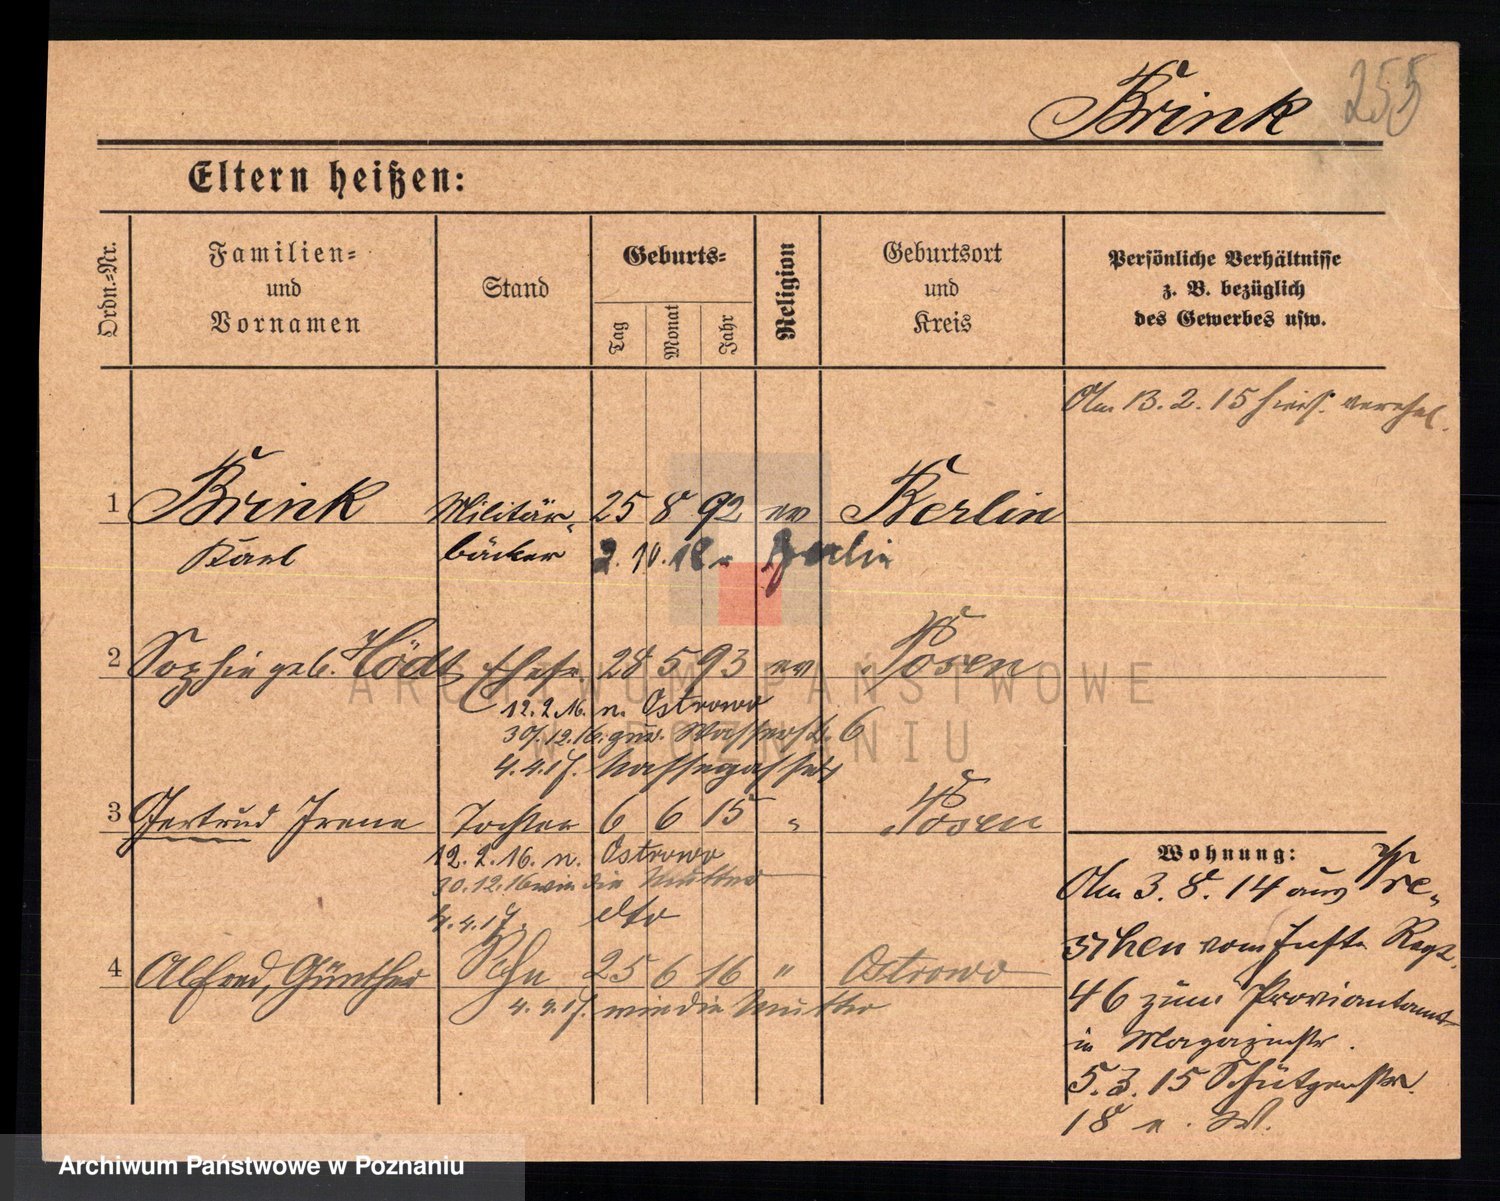 Brink 255
Eltern heißen:
Ordn.-Nr.
Familien-
und
Vornamen
Stand
Geburts-
Tag
Monat
Jahr
Religion
Geburtsort
und
Kreis
Persönliche Verhältnisse
z. B. bezüglich
des Gewerbes usw.
13. 2. 15
1 Brink Militär- 25 8 92 ev Berlin
Karl bäcker 2. 10. 18 n Berlin
2 Sophie geb. Hödt Ehefr. 28 5 93 ev Posen
12. 2. 16. n. Ostrowo
30. 12. 16. zur. Wasserstr. 6
4. 4. 17.
3 Gertrud Irene Tochter 6 6 15 " Posen
12. 2. 16. n. Ostrowo
30. 12. 16 wie die Mutter
4. 4. 17. dto
4 Alfred, Günther Sohn 25 6 16 " Ostrowo
4. 4. 17. wie die Mutter
Wohnung:
Am 3. 8. 14 aus Wre-
schen vom Inftr. Regt.
46 zum Proviantamt
in Magazinstr.
5. 3. 15 Schützenstr.
18 n. W.
ARCHIWUM PAŃSTWOWE
W POZNANIU
Archiwum Państwowe w Poznaniu